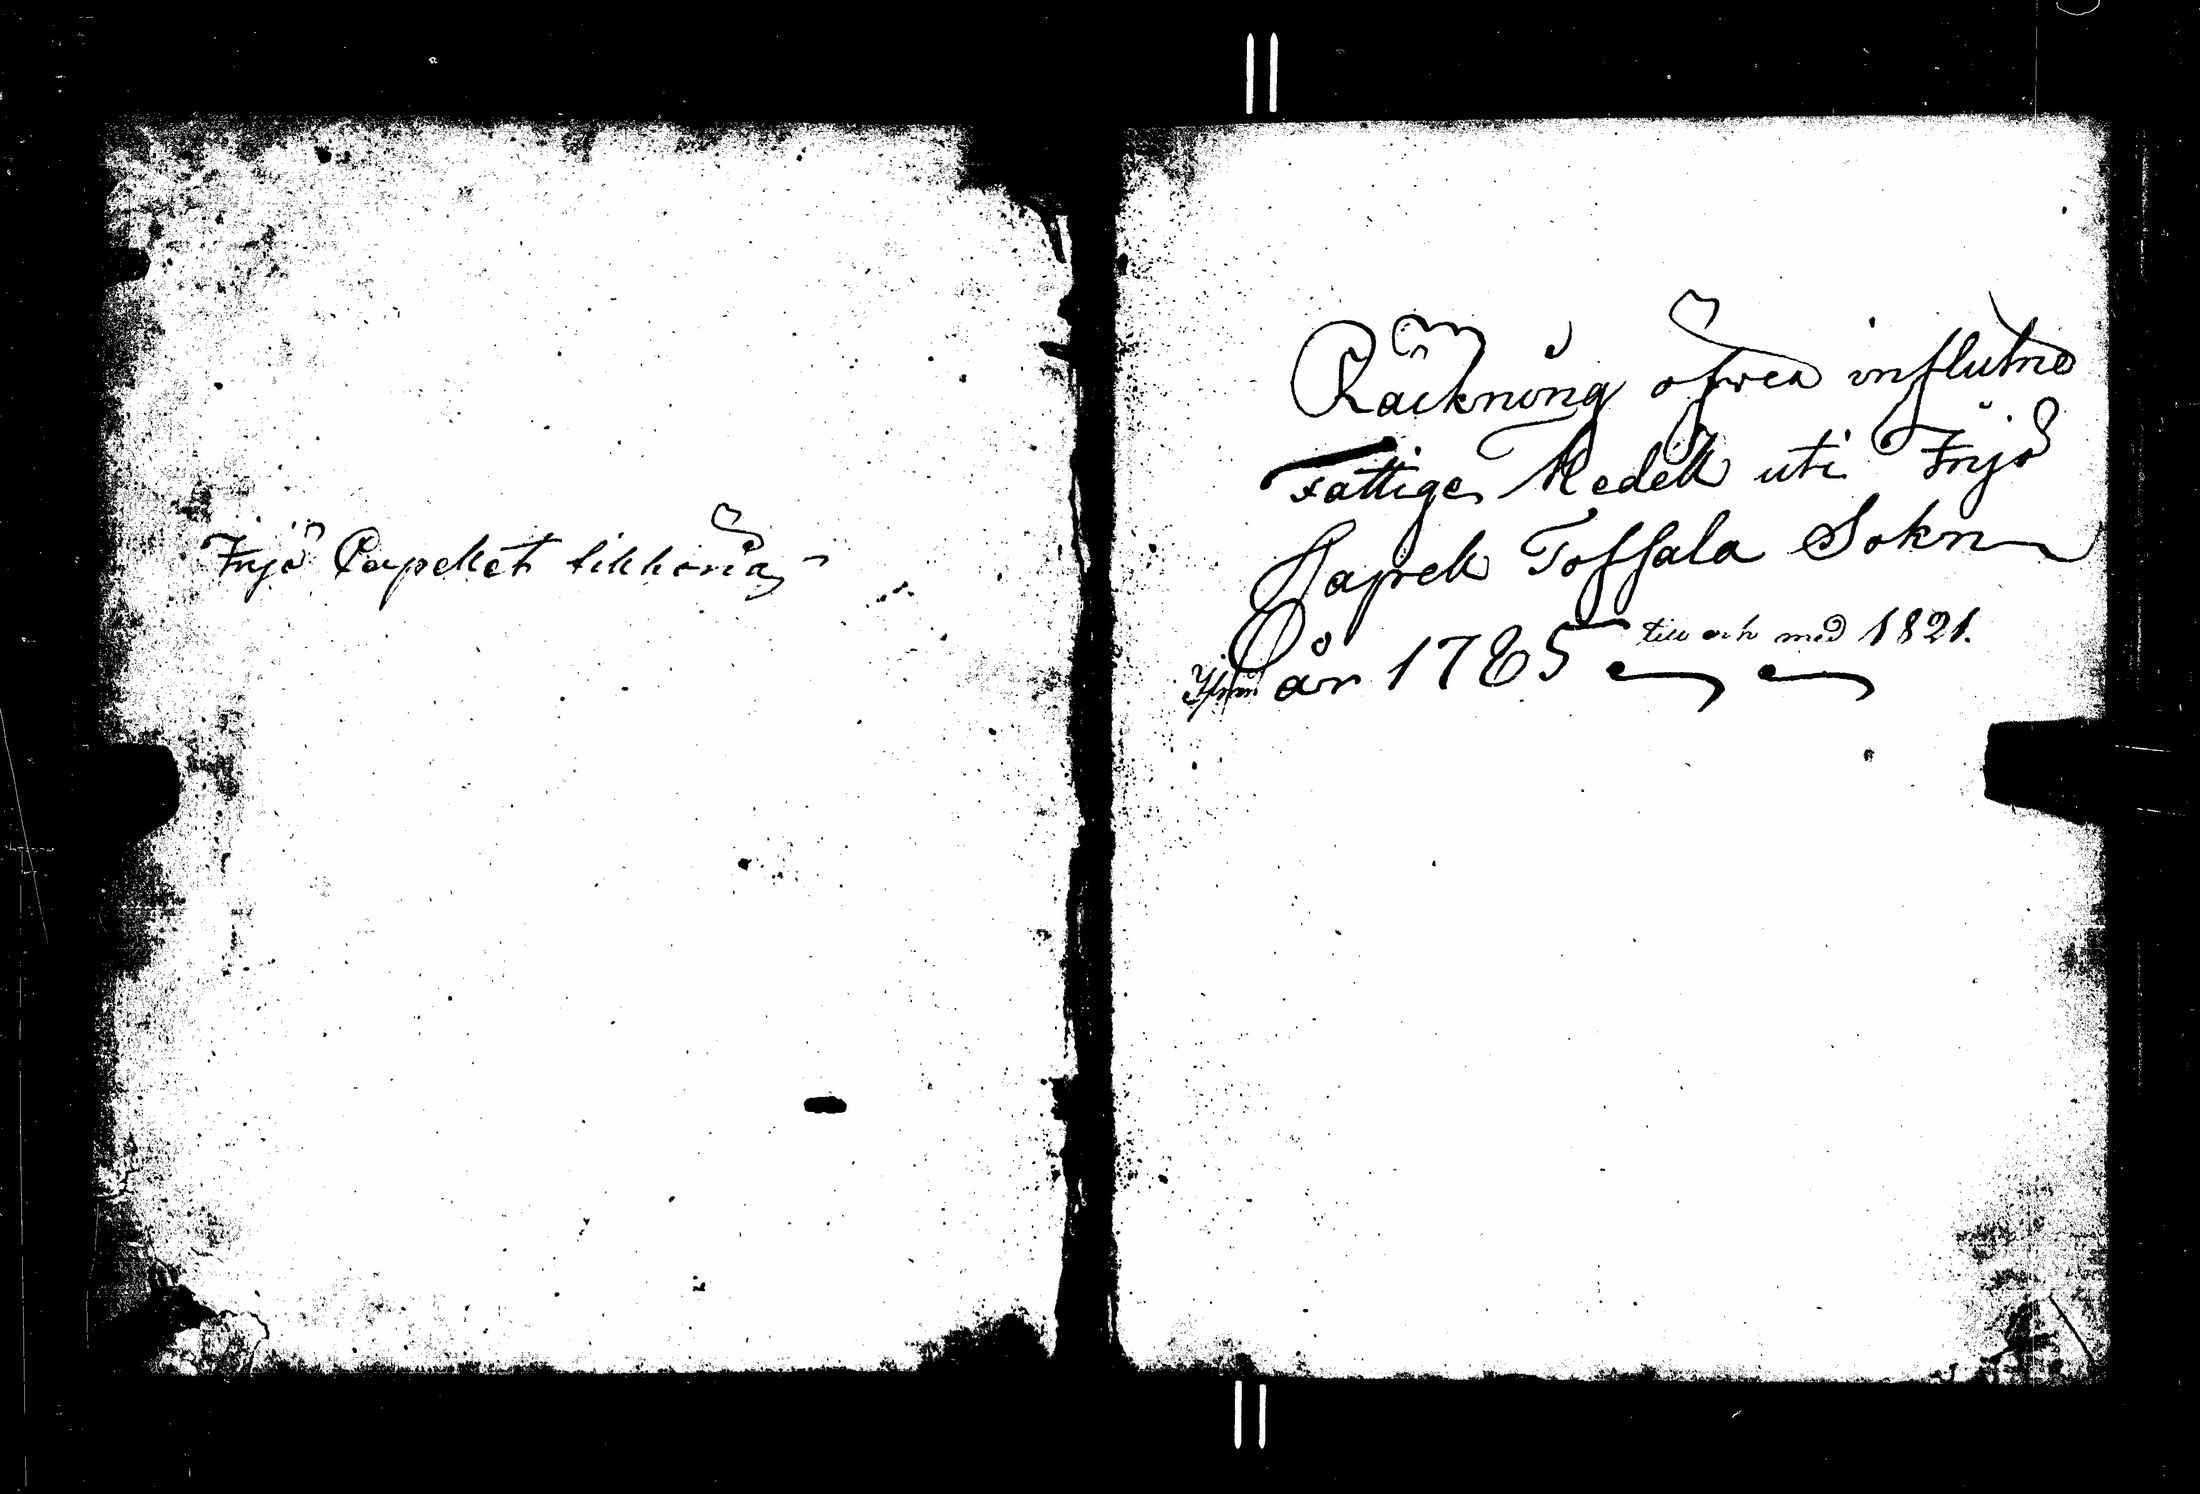 Frijö Capellet tillhörig
Räckning öfver influtne
Fattige Medell uti Frijö
Capell Tofsala Sokn
ifrån år 1785 till och med 1821.